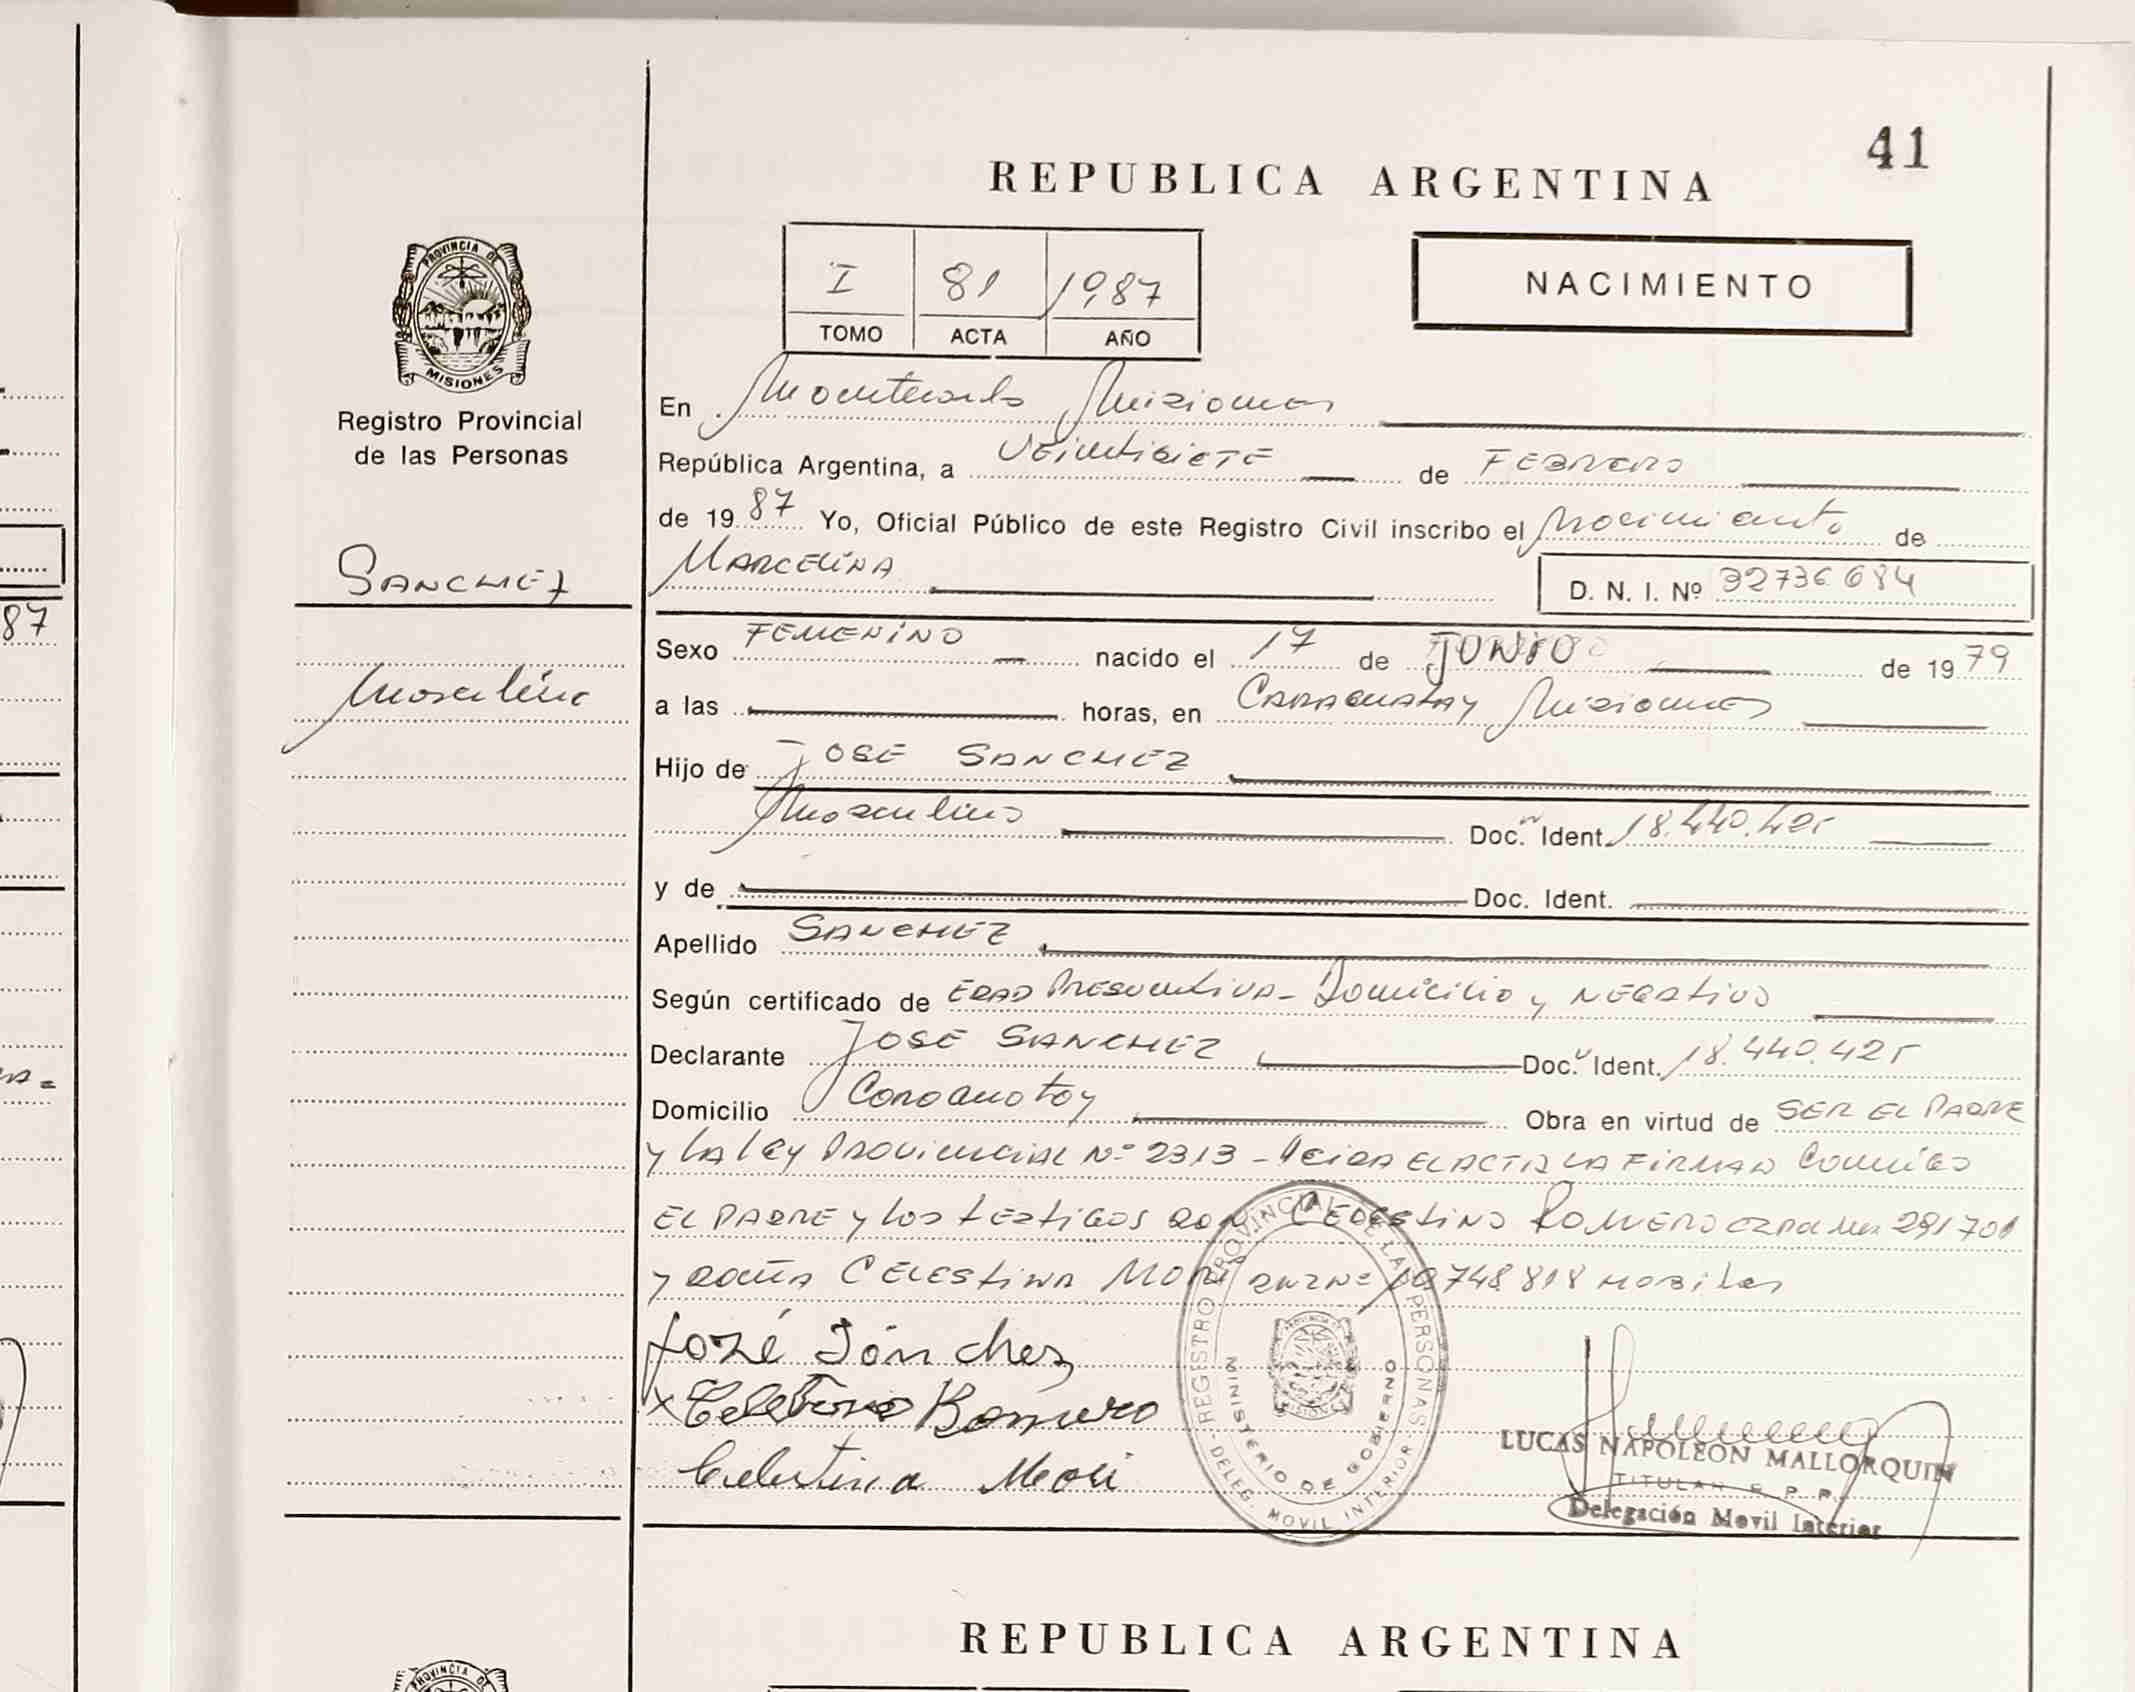 41
REPUBLICA ARGENTINA
I 81 1987
TOMO ACTA AÑO
NACIMIENTO
PROVINCIA DE
MISIONES
Registro Provincial
de las Personas
SANCHEZ
Marcelina
En Montecarlo Misiones
República Argentina, a VEINTISIETE de FEBRERO
de 1987 Yo, Oficial Público de este Registro Civil inscribo el Nacimiento de
MARCELINA D. N. I. Nº 32736684
Sexo FEMENINO nacido el 17 de JUNIO de 1979
a las horas, en CARAGUATAY Misiones
Hijo de JOSE SANCHEZ
Masculino Doc. Ident. 18.440.425
y de Doc. Ident.
Apellido SANCHEZ
Según certificado de EDAD PRESUNTIVA - Domicilio y NEGATIVO
Declarante JOSE SANCHEZ Doc. Ident. 18.440.425
Domicilio Caraguatay Obra en virtud de SER EL PADRE
y LA LEY PROVINCIAL Nº 2313 - Leida EL ACTA LA FIRMAN Conmigo
EL PADRE y LOS TESTIGOS DON CELESTINO ROMERO 291701
y DOÑA CELESTINA MORI DNI Nº 10748818 HABILES
José Sánchez
x Celestino Romero
Celestina Mori
REGISTRO PROVINCIAL DE LAS PERSONAS
MINISTERIO DE GOBIERNO
DELEG. MOVIL INTERIOR
LUCAS NAPOLEON MALLORQUIN
TITULAR R. P. P.
Delegación Movil Interior
REPUBLICA ARGENTINA
PROVINCIA DE
87